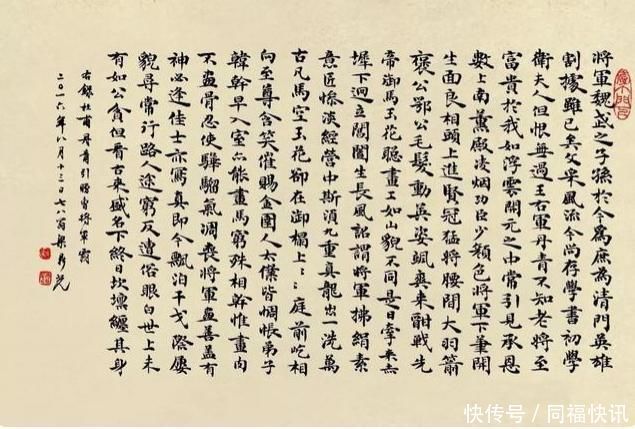 將軍魏武之子孫於今為庶為清門英雄
割據雖已矣文采風流今尚存學書初學
衛夫人但恨無過王右軍丹青不知老將至
富貴於我如浮雲開元之中常引見承恩
數上南薰殿凌烟功臣少顏色將軍下筆開
生面良相頭上進賢冠猛將腰間大羽箭
褒公鄂公毛髮動英姿颯爽來酣戰先
帝御馬玉花驄畫工如山貌不同是日牽來赤
墀下迥立閶闔生長風詔謂將軍拂絹素
意匠慘淡經營中斯須九重真龍出一洗萬
古凡馬空玉花卻在御榻上：庭前屹相
向至尊含笑催賜金圉人太僕皆惆悵弟子
韓幹早入室亦能畫馬窮殊相幹惟畫肉
不畫骨忍使驊騮氣凋喪將軍畫善蓋有
神必逢佳士亦寫真即今飄泊干戈際屢
貌尋常行路人途窮反遭俗眼白世上未
有如公貧但看古來盛名下終日坎壈纏其身
右錄杜甫丹青引贈曹將軍霸
二〇一六年八月十三日七八翁梁
快传号／同福快讯